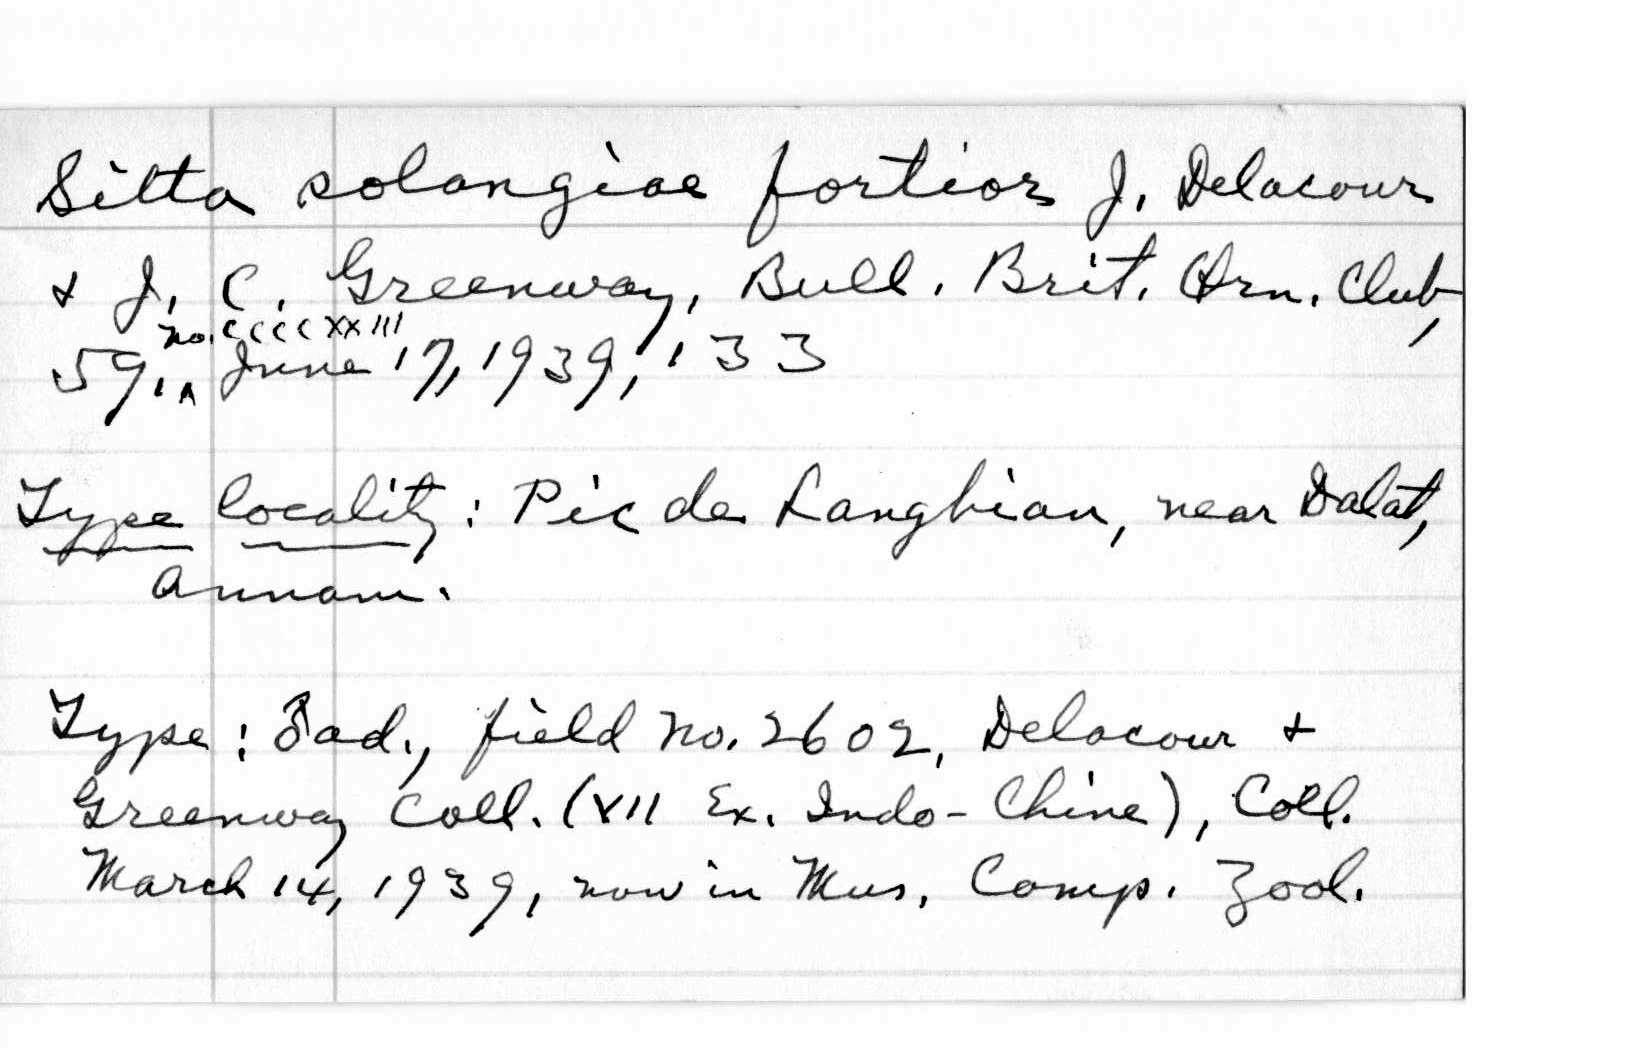 Sitta solangiae fortior J. Delacour
& J. C. Greenway, Bull. Brit. Orn. Club,
no. CCCCXXIII
59, ^ June 17, 1939, 133
Type locality: Pic de Langbian, near Dalat,
Annam.
Type: ♂ ad., field no. 2602, Delacour &
Greenway Coll. (VII Ex. Indo-Chine), Coll.
March 14, 1939, now in Mus. Comp. Zool.